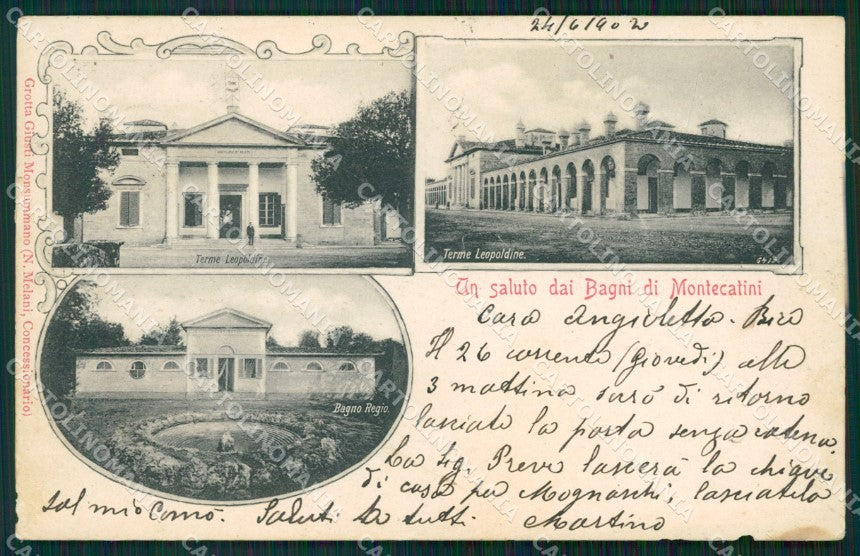 24/6/902
Terme Leopoldine.
Terme Leopoldine.
6413
Un saluto dai Bagni di Montecatini
Bagno Regio.
Grotta Giusti Monsummano (N. Melani, Concessionario)
Cara Angioletta.
Il 26 corrente (Giovedì) alle
3 mattina sarò di ritorno
lasciate la porta senza catena.
La Sg. Preve lascerà la chiave
di casa per Mognaschi, lasciatela
sul mio Comò. Saluti a tutti.
Martino
CARTOLINOMANIA